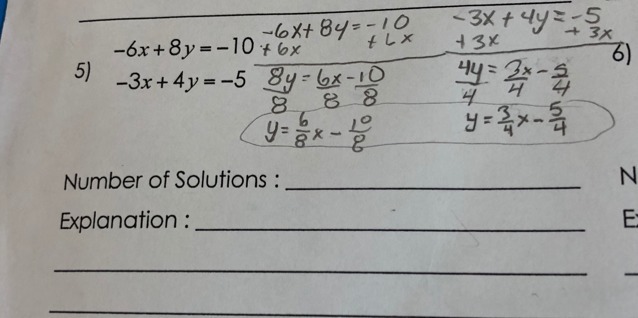 5) -6x + 8y = -10
-3x + 4y = -5
-6x + 8y = -10
+6x +6x
8y = 6x - 10
8 8 8
y = 6/8 x - 10/8
-3x + 4y = -5
+3x +3x
4y = 3x - 5
4 4 4
y = 3/4 x - 5/4
6)
Number of Solutions :
Explanation :
N